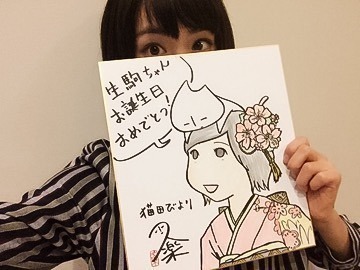 生駒ちゃん
お誕生日
おめでとう!
猫田びより
楽